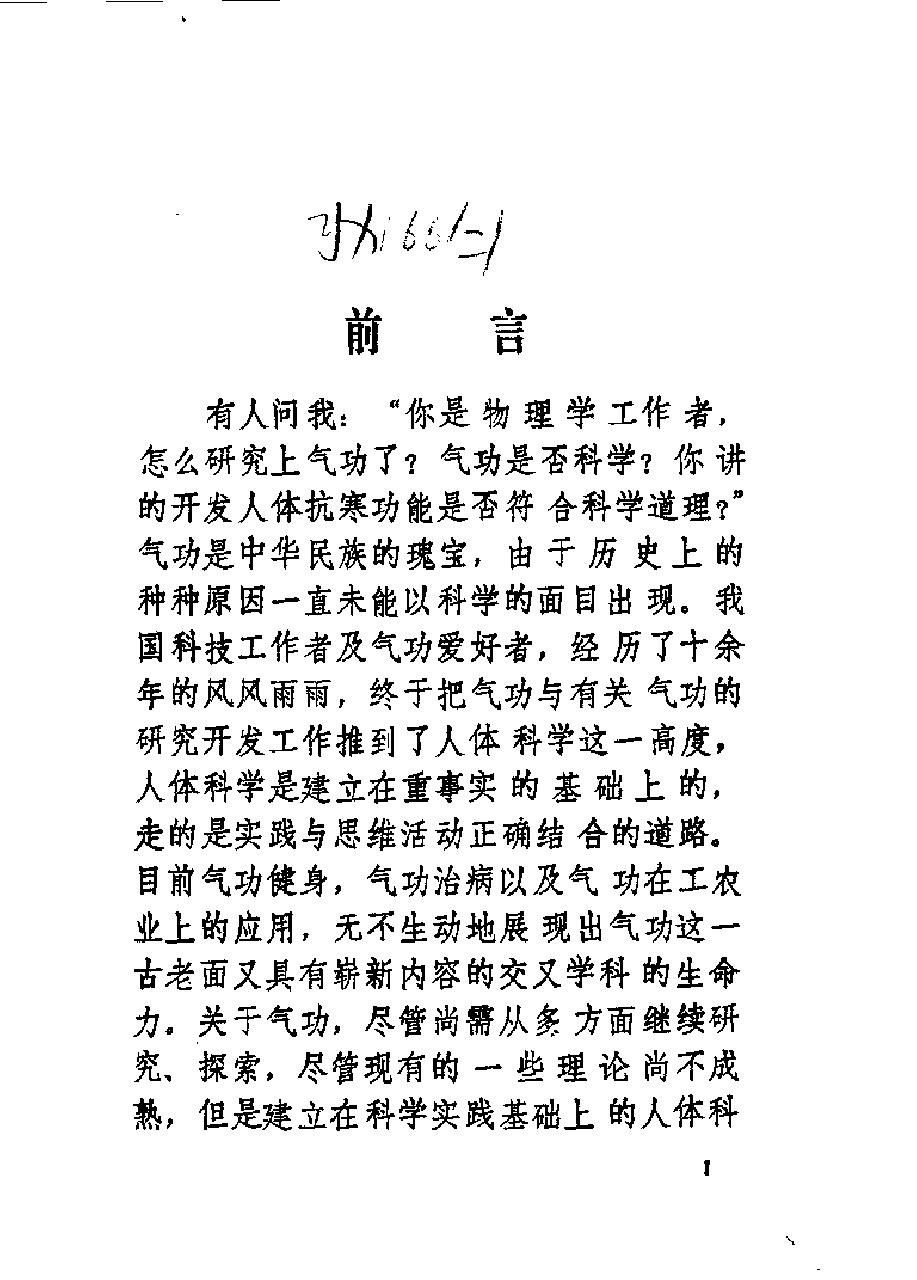 前言
有人问我：“你是物理学工作者，
怎么研究上气功了？气功是否科学？你讲
的开发人体抗寒功能是否符合科学道理？”
气功是中华民族的瑰宝，由于历史上的
种种原因一直未能以科学的面目出现。我
国科技工作者及气功爱好者，经历了十余
年的风风雨雨，终于把气功与有关气功的
研究开发工作推到了人体科学这一高度，
人体科学是建立在重事实的基础上的，
走的是实践与思维活动正确结合的道路。
目前气功健身，气功治病以及气功在工农
业上的应用，无不生动地展现出气功这一
古老面又具有崭新内容的交叉学科的生命
力。关于气功，尽管尚需从多方面继续研
究、探索，尽管现有的一些理论尚不成
熟，但是建立在科学实践基础上的人体科
1